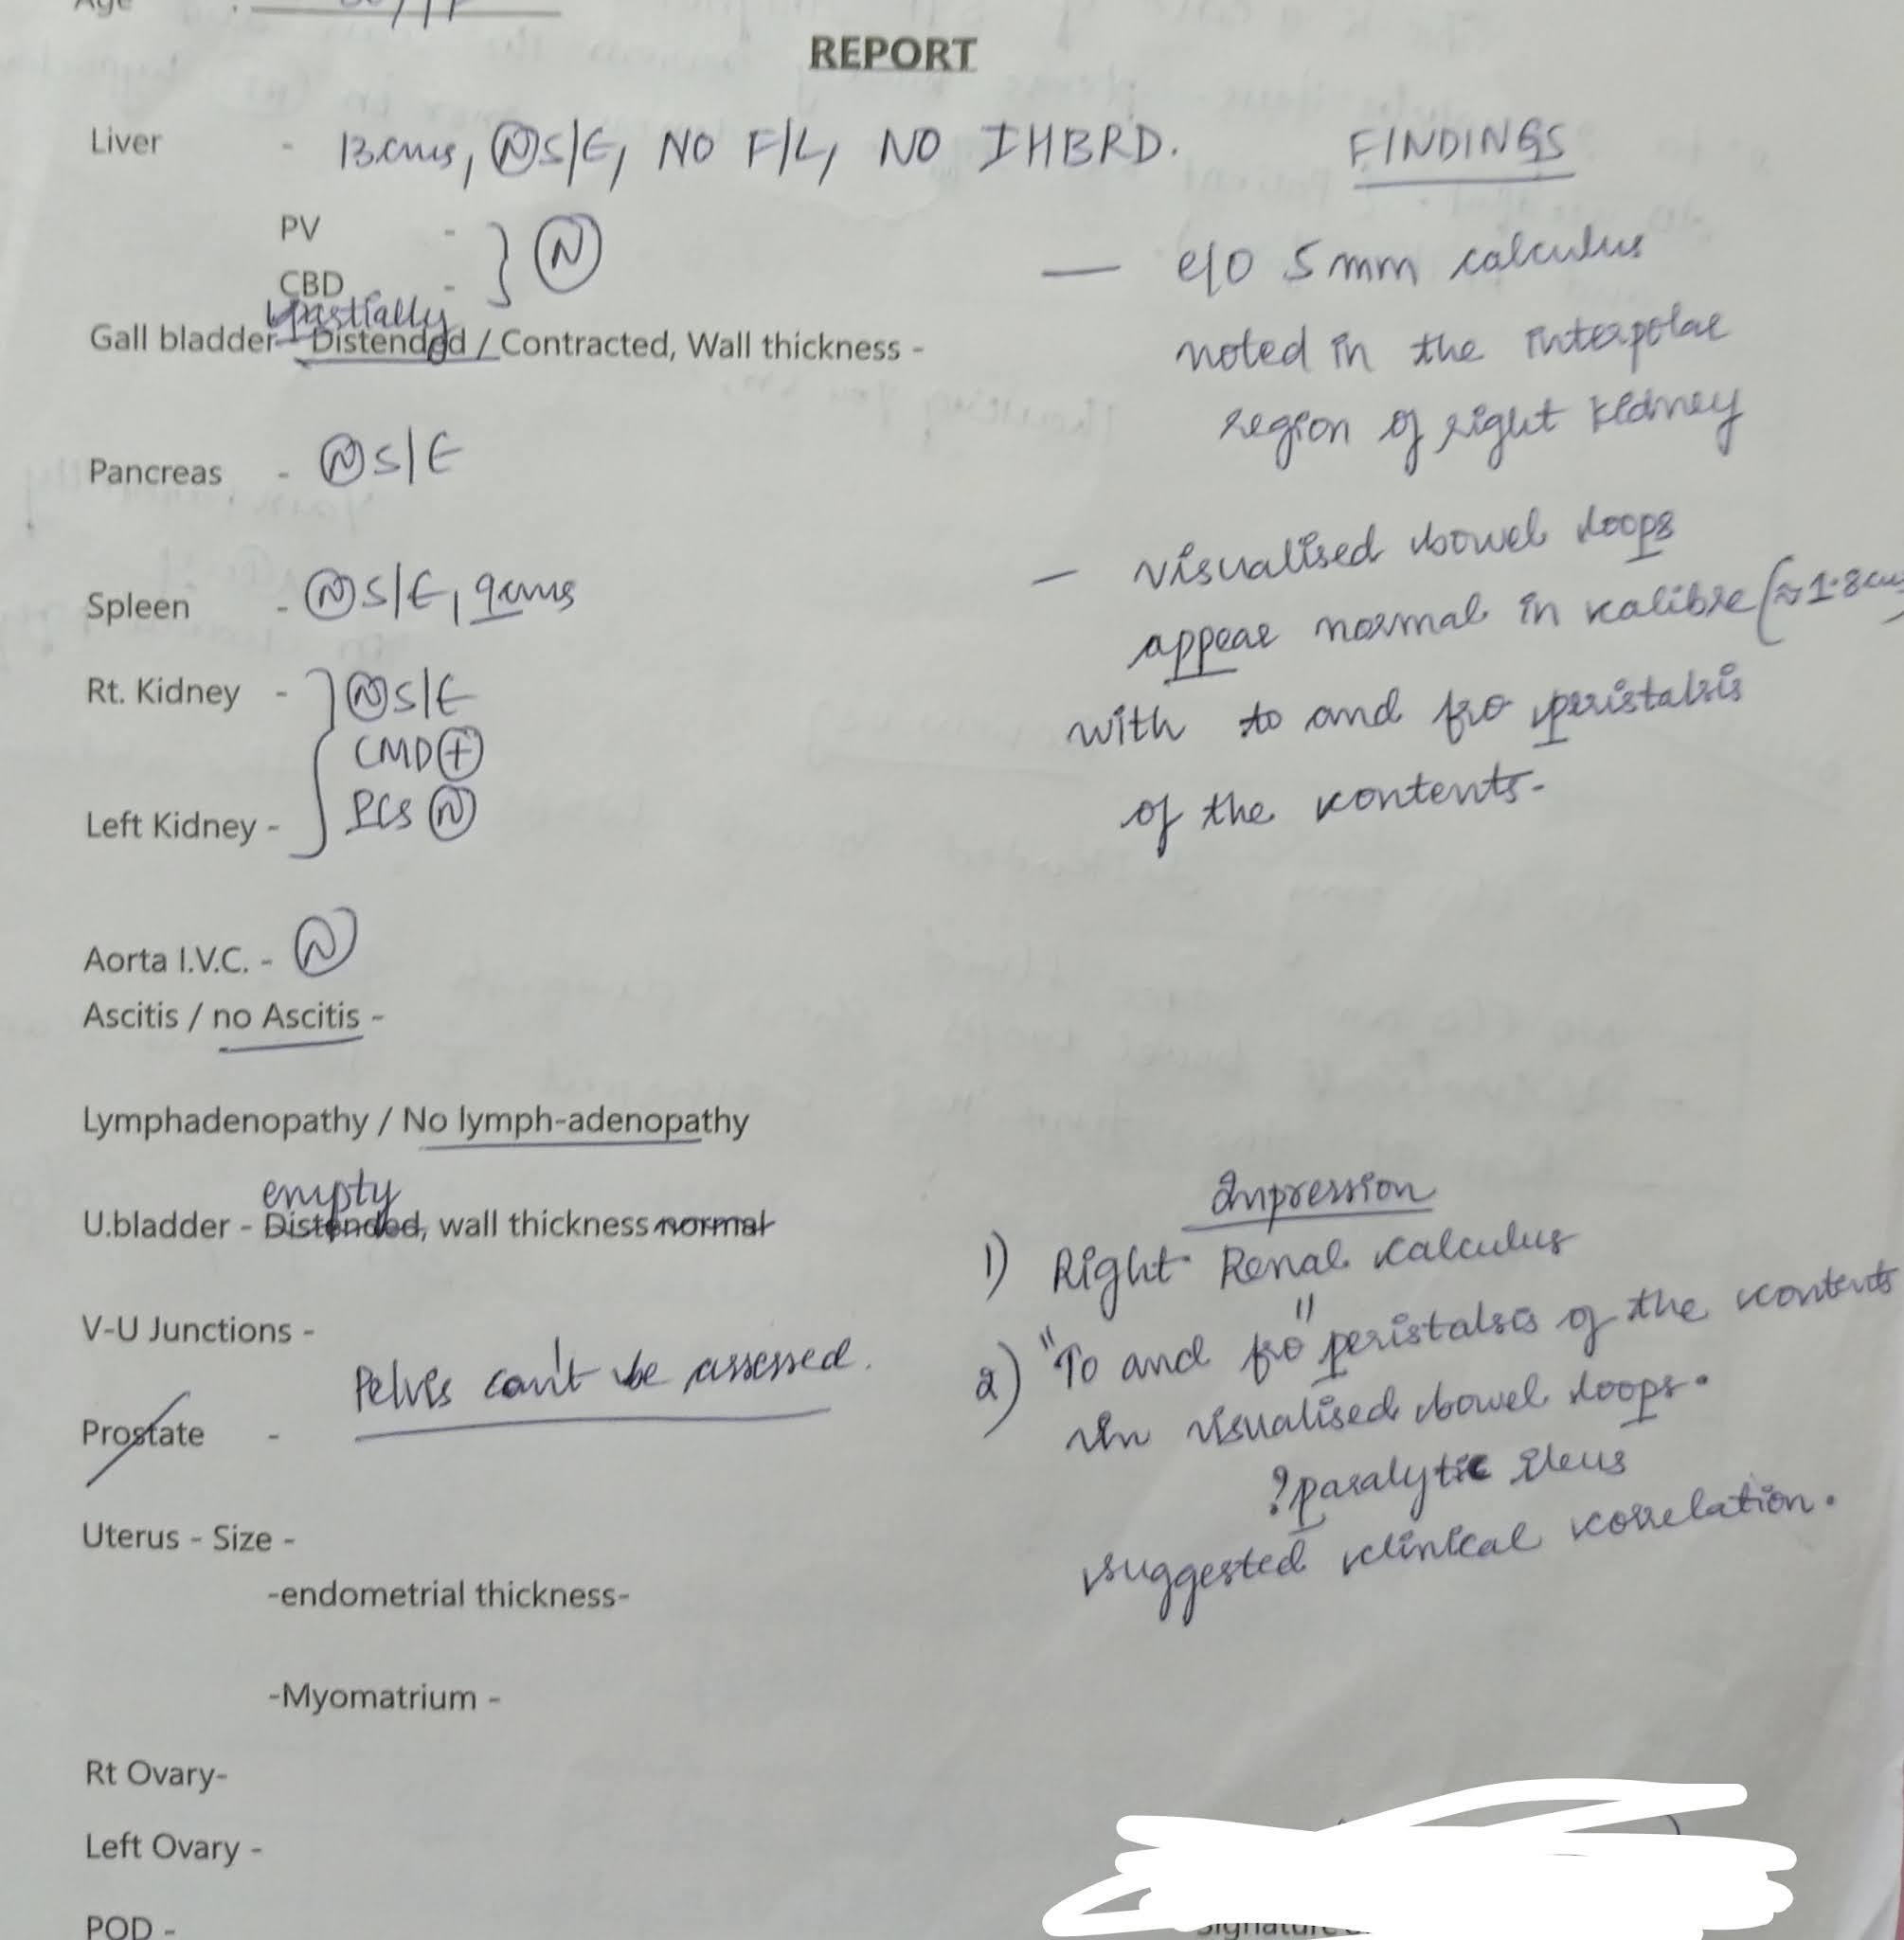 Age :
REPORT
Liver - 13cms, Ⓝ S/E, NO F/L, NO IHBRD.
PV -
CBD - } Ⓝ
partially
Gall bladder - Distended / Contracted, Wall thickness -
Pancreas - Ⓝ S/E
Spleen - Ⓝ S/E, 9cms
Rt. Kidney - Ⓝ S/E
CMD ⊕
PCS Ⓝ
Left Kidney -
Aorta I.V.C. - Ⓝ
Ascitis / no Ascitis -
Lymphadenopathy / No lymph-adenopathy
empty
U.bladder - Distended, wall thickness normal
V-U Junctions -
Pelvis can't be assessed.
Prostate -
Uterus - Size -
-endometrial thickness-
-Myomatrium -
Rt Ovary-
Left Ovary -
POD -
FINDINGS
— e/o 5 mm calculus
noted in the interpolar
region of right kidney
— visualised bowel loops
appear normal in calibre (≈ 1.8cm)
with to and fro peristalsis
of the contents.
Impression
1) Right Renal calculus
2) "To and fro" peristalsis of the contents
in visualised bowel loops.
? paralytic ileus
suggested clinical correlation.